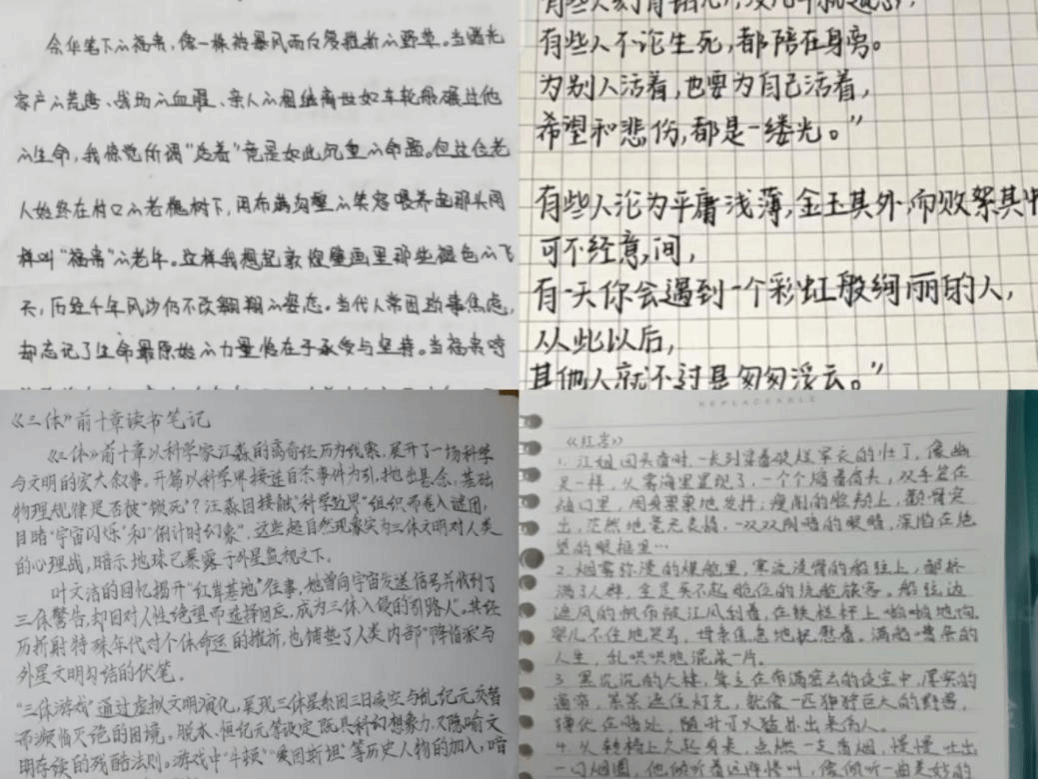 余华笔下的福贵，像一株被暴风雨反复摧折的野草。当赌光
家产的荒唐、战场的血腥、亲人的相继离世如车轮般碾过他
的生命，我惊觉所谓"活着"竟是如此沉重的命题。但这位老
人始终在村口的老槐树下，用布满沟壑的笑容喂养起那头同
样叫"福贵"的老牛。这样我想起敦煌壁画里那些褪色的飞
天，历经千年风沙仍不改翩翔的姿态。当代人常困于焦虑，
却忘记了生命最原始的力量恰在于承受与坚持。当福贵哼
有些人不论生死，都陪在身旁。
为别人活着，也要为自己活着，
希望和悲伤，都是一缕光。"
有些人沦为平庸浅薄，金玉其外，而败絮其中
可不经意，间，
有一天你会遇到一个彩虹般绚丽的人，
从此以后，
其他人就不过是匆匆浮云。"
《三体》前十章读书笔记
《三体》前十章以科学家汪淼的离奇经历为线索，展开了一场科学
与文明的宏大叙事。开篇以科学界接连自杀事件为引，抛出悬念：基础
物理规律是否被"锁死"？汪淼因接触"科学边界"组织而卷入谜团，
目睹"宇宙闪烁"和"倒计时幻象"，这些超自然现象实为三体文明对人类
的心理战，暗示地球已暴露于外星监视之下。
叶文洁的回忆揭开"红岸基地"往事，她曾向宇宙发送信号并收到了
三体警告，却因对人性绝望而选择回应，成为三体入侵的引路人。其经
历折射特殊年代对个体命运的摧折，也铺垫了人类内部"降临派"与
外星文明勾结的伏笔。
"三体游戏"通过虚拟文明演化，呈现三体星系因三日凌空与乱纪元交替
而濒临灭绝的困境。脱水、恒纪元等设定既具科幻想象力，又隐喻文
明存续的残酷法则。游戏中"牛顿""爱因斯坦"等历史人物的加入，暗
REPLACEABLE
《红岩》
1. 江姐回头看时，一长列穿着破烂军衣的壮丁，像幽
灵一样，从雾海里显现了，一个个缩着肩头，双手笼在
袖口里，周身索索地发抖；瘦削的脸颊上，颧骨突
出，茫然地毫无表情，一双双阴暗的眼睛，深陷在绝
望的眼眶里…
2. 烟雾弥漫的煤舱里，寒流浸骨的船弦上，都挤
满了人群，全是买不起舱位的统舱旅客。船弦边
遮风的帆布被江风刮着，在铁栏杆上啪啪地响
婴儿不住地哭号，母亲焦急地抚慰着。满船嘈杂的
人生，乱哄哄地混成一片。
3. 黑沉沉的大楼，耸立在布满密云的夜空中，厚实的
窗帘，紧紧遮住灯光，就像一匹狰狞巨大的野兽，
蹲伏在暗处，随时可以猛扑出来伤人。
4. 从转椅上欠起身来，点燃一支香烟，慢慢吐出
一口烟圈，他倾听着这阵惨叫，像倾听一曲美妙的